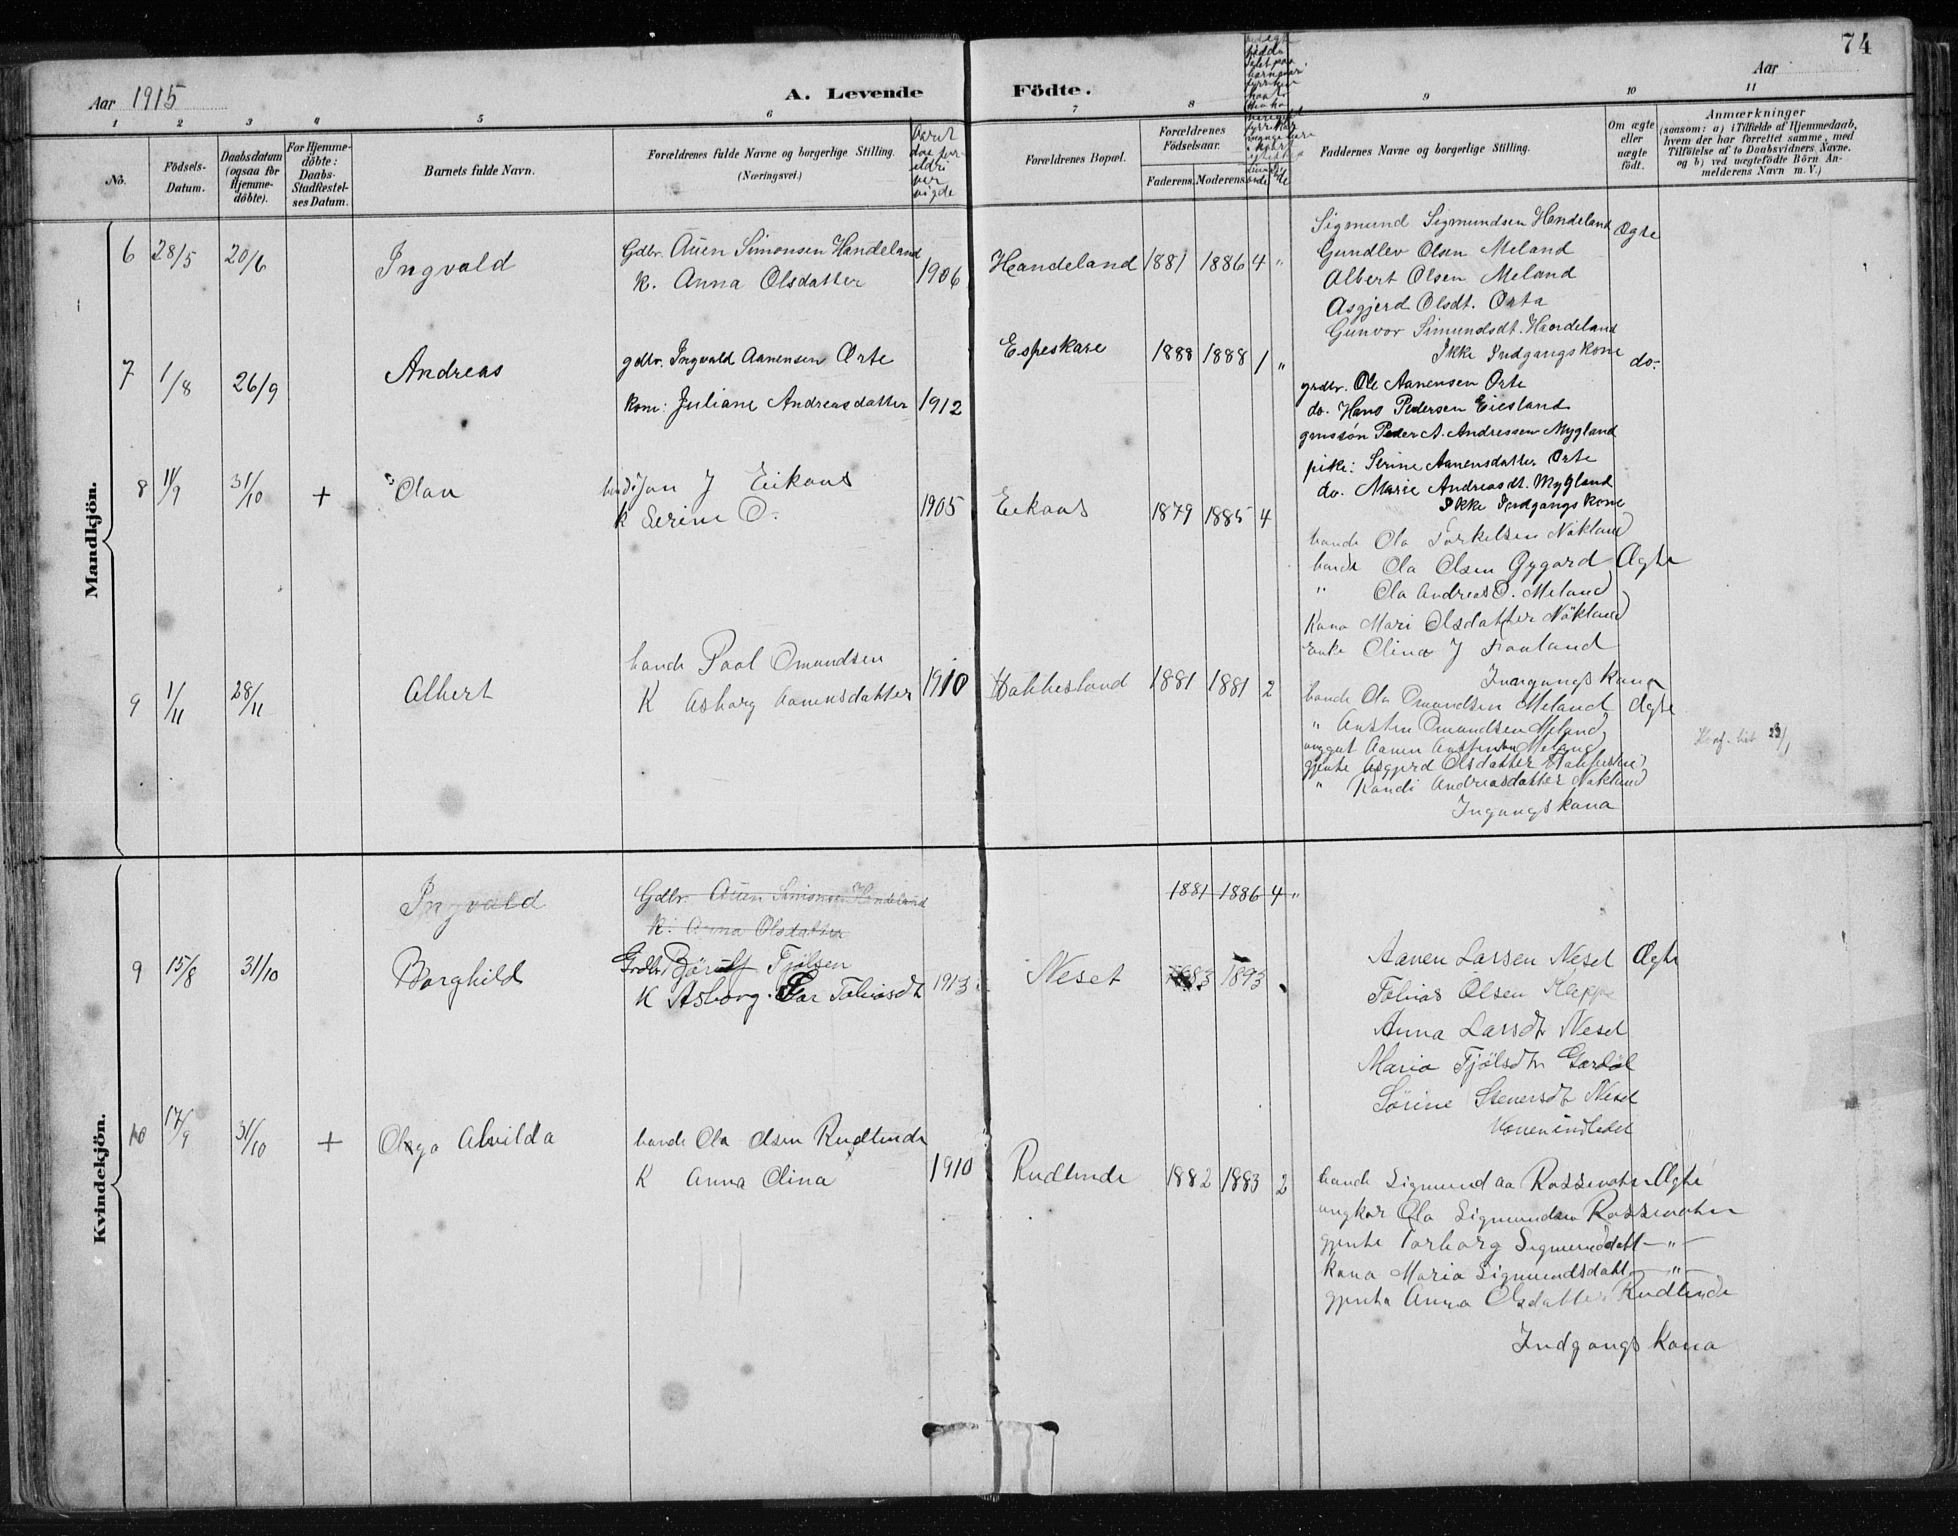 74
Aar 1915 A. Levende Födte. Aar
1 2 3 4 5 6 7 8 9 10 11
No.
Födsels-Datum.
Daabsdatum (ogsaa for Hjemme-döbte).
For Hjemme-döbte: Daabs-Stadfæstel-ses Datum.
Barnets fulde Navn.
Forældrenes fulde Navne og borgerlige Stilling.
(Næringsvei.)
Forældrenes Bopæl.
Forældrenes Födselsaar.
Faderens. Moderens.
Faddernes Navne og borgerlige Stilling.
Om ægte eller uægte födt.
Anmærkninger
(saasom: a) i Tilfælde af Hjemmedaab,
hvem der har forrettet samme, med
Tilföielse af to Daabsvidners Navne.
og b) ved uægtefödte Börn An-
melderens Navn m. V.)
Mandkjön.
6 28/5 20/6 Ingvald
Gdbr. Auen Simonsen Handeland
k. Anna Olsdatter
1906 Handeland 1881 1886 4 "
Sigmund Sigmundsen Handeland Ægte
Gundlev Olsen Meland
Albert Olsen Meland
Asgjerd Olsdt. Orta
Gunvor Simundsdt. Haandeland
Ikke Indgangskone
7 1/8 26/9 Andreas
gdbr. Ingvald Aanensen Ørte
kone: Juliane Andreasdatter 1912
Espeskare 1888 1888 1 " do.
grdbr. Ole Aanensen Orte
do. Hans Pedersen Eiesland
Peder A. Andressen Mygland
pike: Serine Aanensdatter Orte
do. Marie Andreasdt. Mygland
Ikke Indgangskone
8 11/9 31/10 + Olav
Jon J Eikaas
k Serine O.
1905 Eikaas 1879 1885 4
bonde Ola Torkelsen Nökland
bonde Ola Olsen Gygard Ægte
" Ola Andreas O. Meland
Kona Mari Olsdatter Nökland
Enke Olina J
Ingangskona
9 1/11 28/11 Albert
bonde Paal Omundsen
K Asborg Aanensdatter
1910 1881 1881 2
bonde Ola Omundsen Meland Ægte
" Austen Omundsen Meland
unggut Aanen Austensen Meland
gjente Asgjerd Olsdatter
" Kandi Andreasdatter Nökland
Ingangskona
Kvindekjön.
Ingvald
Gdbr. Auen Simonsen Handeland
k. Anna Olsdatter
1881 1886 4 "
9 15/8 31/10 Borghild
Grdbr Börulf Fjölsen
K Asborg Tobiasdt
1913 Neset 1883 1893
Aanen Larsen Neset Ægte
Tobias Olsen Kleppe
Anna Larsdt Neset
Maria Fjölsdtr
Sörine Stenersdt Neset
Konen indledet
10 17/9 31/10 + Olga Alvilda
bonde Ola Olsen Rudlende
K Anna Olina
1910 Rudlende 1882 1883 2
bonde Sigmund Aa Rossevatn Ægte
ungkar Ola Sigmundsen Rossevatn
gjente Torborg Sigmundsdatt — " —
kona Maria Sigmundsdatt — " —
gjente Anna Olsdatter Rudlende
Indgangskona